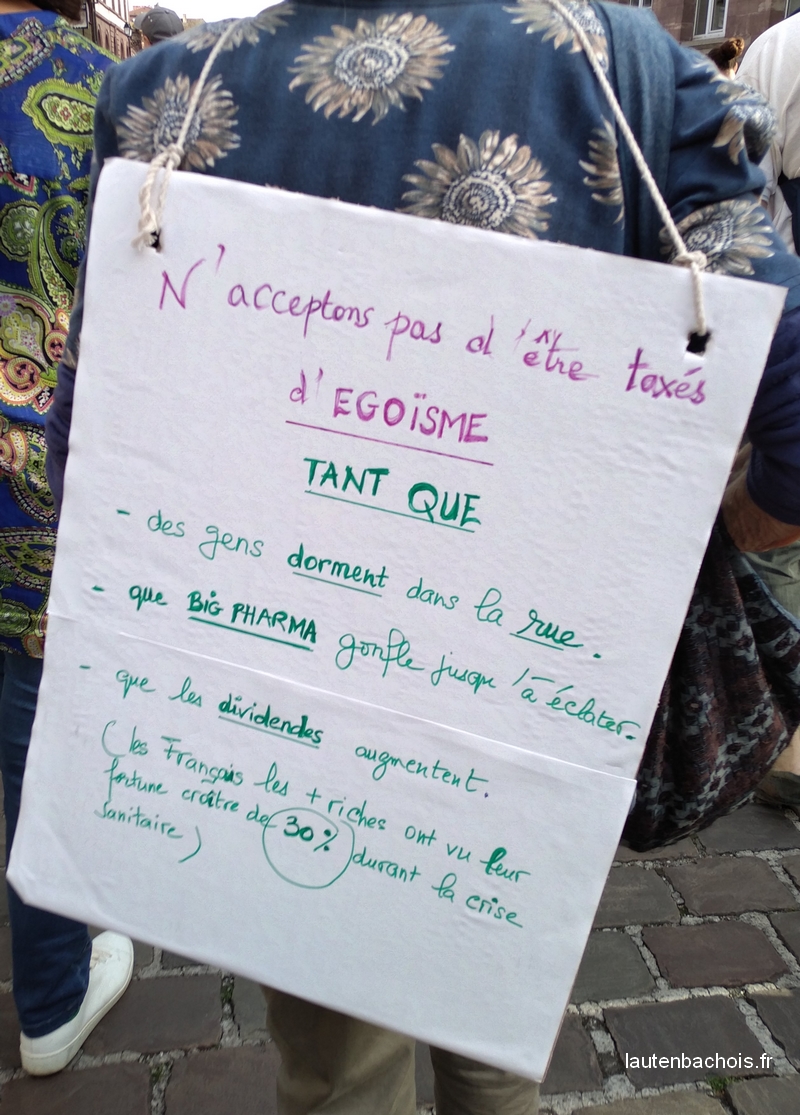 N'acceptons pas d'être taxés
d'EGOÏSME
TANT QUE
- des gens dorment dans la rue.
- que BIG PHARMA gonfle jusqu'à éclater.
- que les dividendes augmentent.
(les Français les + riches ont vu leur
fortune croître de 30% durant la crise
sanitaire)
lautenbachois.fr